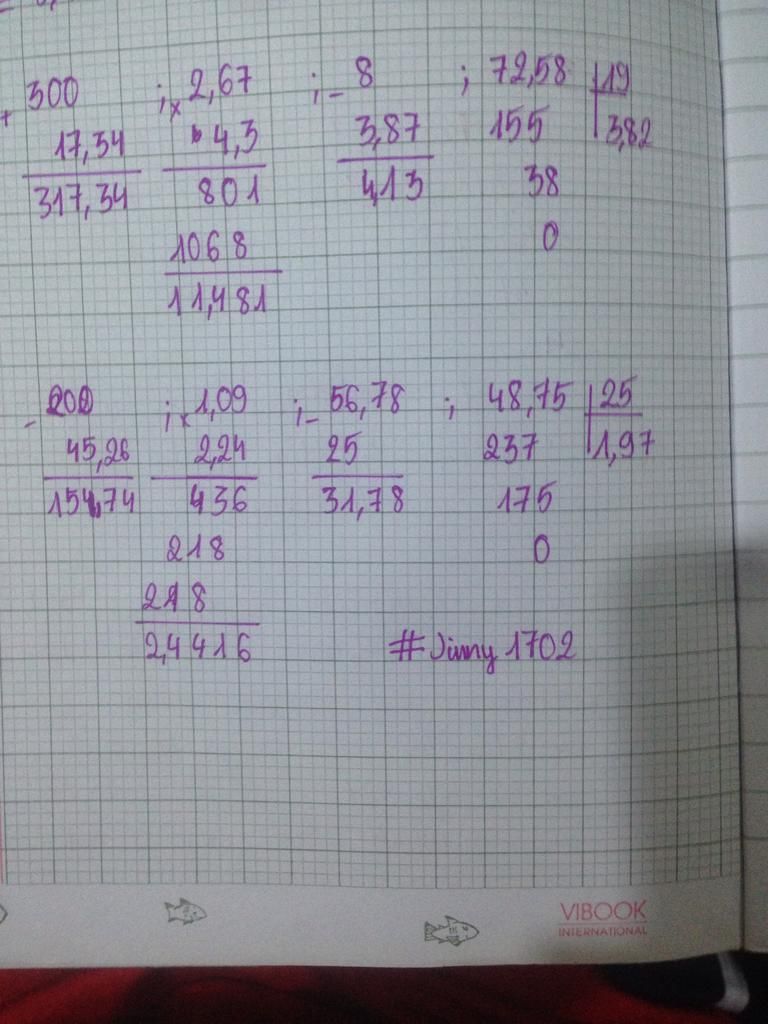 + 300 ; x 2,67 ; - 8 ; 72,58 19
17,34 4,3 3,87 155 3,82
317,34 801 4,13 38
1068 0
11,481
- 200 ; x 1,09 ; - 56,78 ; 48,75 25
45,26 2,24 25 237 1,97
154,74 436 31,78 175
218 0
218
2,4416 #Jimmy 1702
VIBOOK
INTERNATIONAL